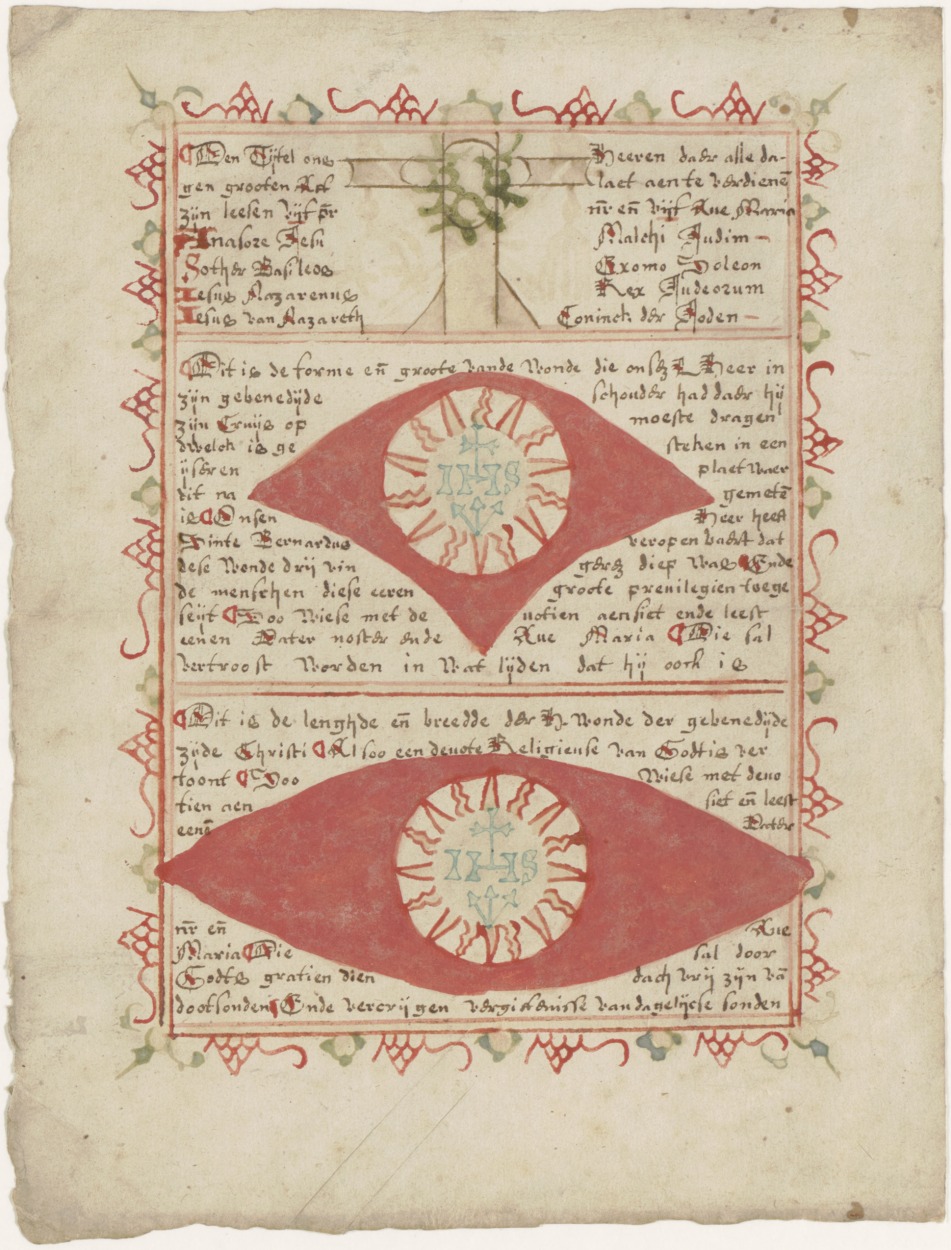 Den Tijtel ons Heeren daer alle da-
gen grooten Afl laet aen te verdienē
zijn leesen vijf pr̄ nr̄ en̄ vijf Aue Maria
Anasore Jesu Malchi Judim -
Sother Basileos Exomo Doleon
Iesus Nazarenus Rex Judeorum
Iesus van Nazareth Coninck der Joden -
Dit is de forme en̄ groote vande Wonde die onse L Heer in
zijn gebenedijde schouder had daer hij
zijn Cruijs op moeste dragen
dwelck is ge steken in een
ijseren plaet Waer
dit na gemetē
is Onsen Heer heeft
Sinte Bernardus veropenbaert dat
dese Wonde drij vin gerẽ diep Was Ende
de menschen diese eeren groote preuilegien toege
seijt Soo Wiese met de uotien aensiet ende leest
eenen Pater noster ende Aue Maria Die sal
vertroost Worden in Wat lijden dat hij oock is
IHS
Dit is de lenghde en̄ breedde der H. Wonde der gebenedijde
zijde Christi Alsoo een deuote Religieuse van Godt is ver
toont Soo Wiese met deuo
tien aen siet en̄ leest
eenē Pater
IHS
nr̄ en̄ Aue
Maria Die sal door
Godts gratien dien dach vrij zijn vā
dootsonden Ende vercrijgen vergiffenisse van dagelijcse sonden